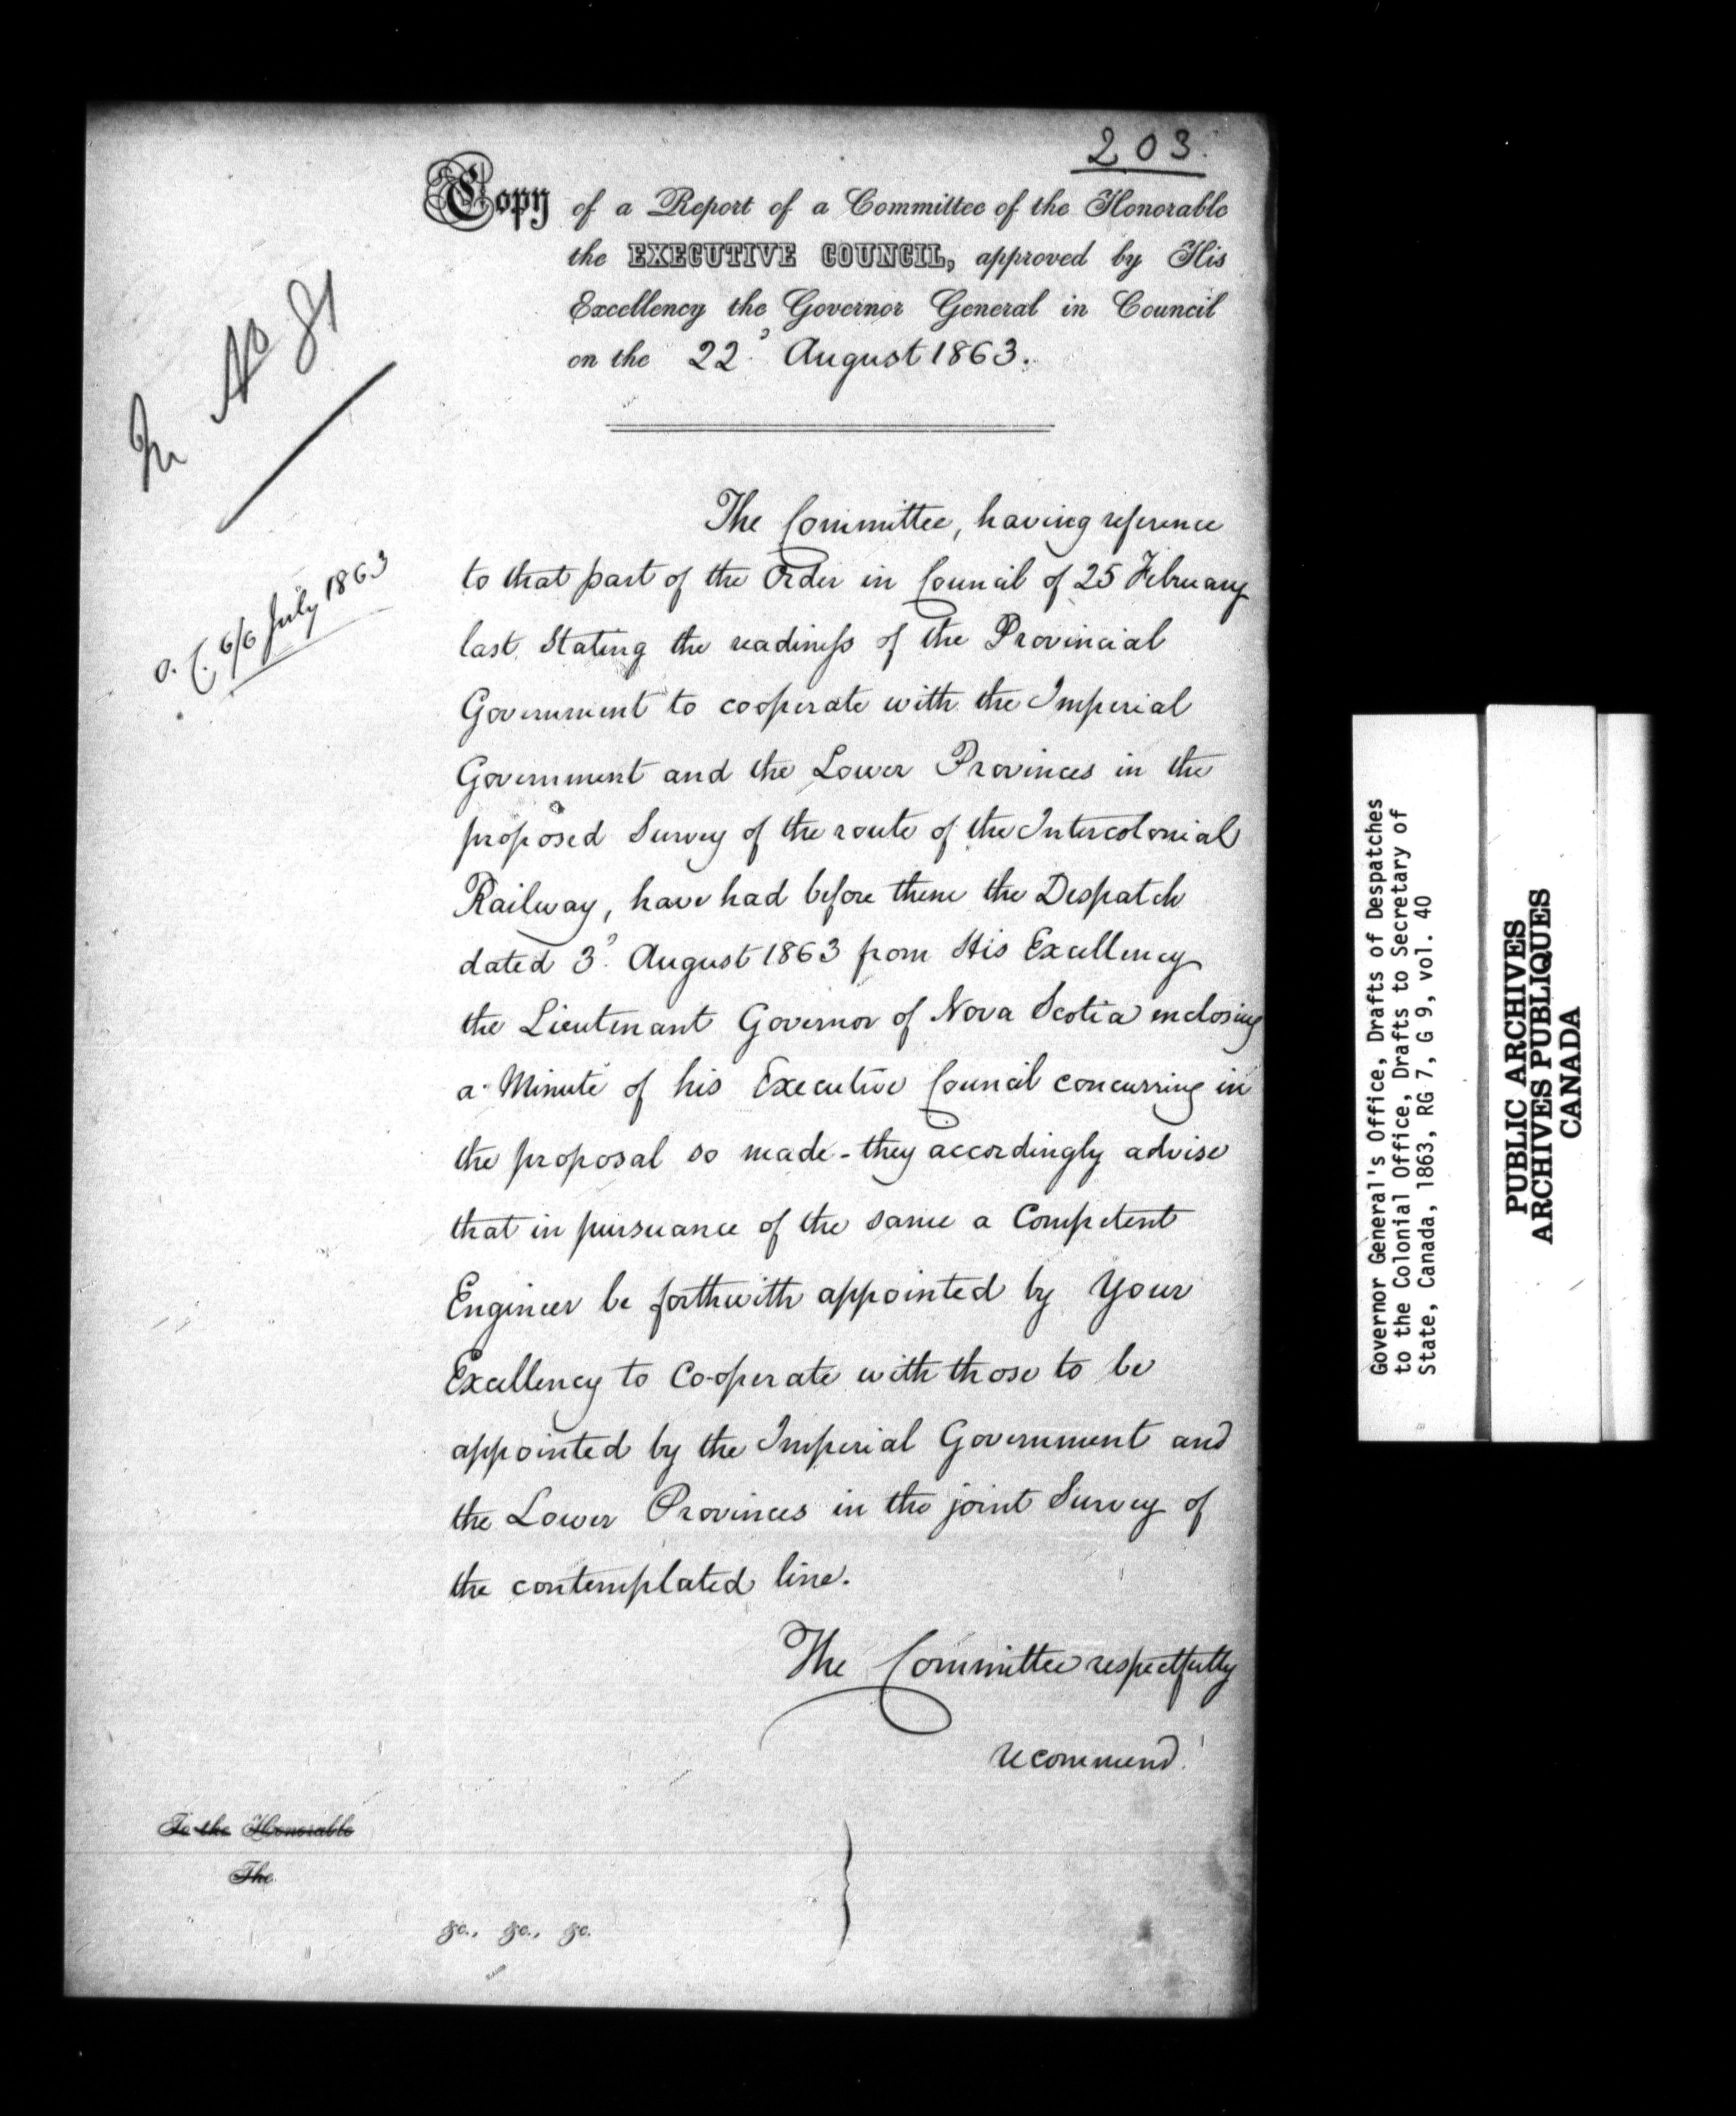 203.
Copy of a Report of a Committee of the Honorable
the EXECUTIVE COUNCIL, approved by His
Excellency the Governor General in Council
on the 22d August 1863.
In No 81
O.C. 6/6 July 1863
The Committee, having reference
to that part of the Order in Council of 25 February
last stating the readiness of the Provincial
Government to cooperate with the Imperial
Government and the Lower Provinces in the
proposed Survey of the route of the Intercolonial
Railway, have had before them the Despatch
dated 3d August 1863 from His Excellency
the Lieutenant Governor of Nova Scotia enclosing
a Minute of his Executive Council concurring in
the proposal so made - they accordingly advise
that in pursuance of the same a Competent
Engineer be forthwith appointed by Your
Excellency to Co-operate with those to be
appointed by the Imperial Government and
the Lower Provinces in the joint Survey of
the contemplated line.
The Committee respectfully
recommend.
To the Honorable
The
&c., &c., &c.
Governor General's Office, Drafts of Despatches
to the Colonial Office, Drafts to Secretary of
State, Canada, 1863, RG 7, G 9, vol. 40
PUBLIC ARCHIVES
ARCHIVES PUBLIQUES
CANADA